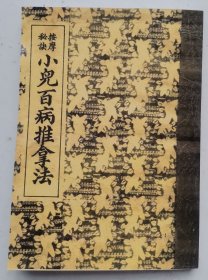 按摩秘诀
小兒百病推拿法